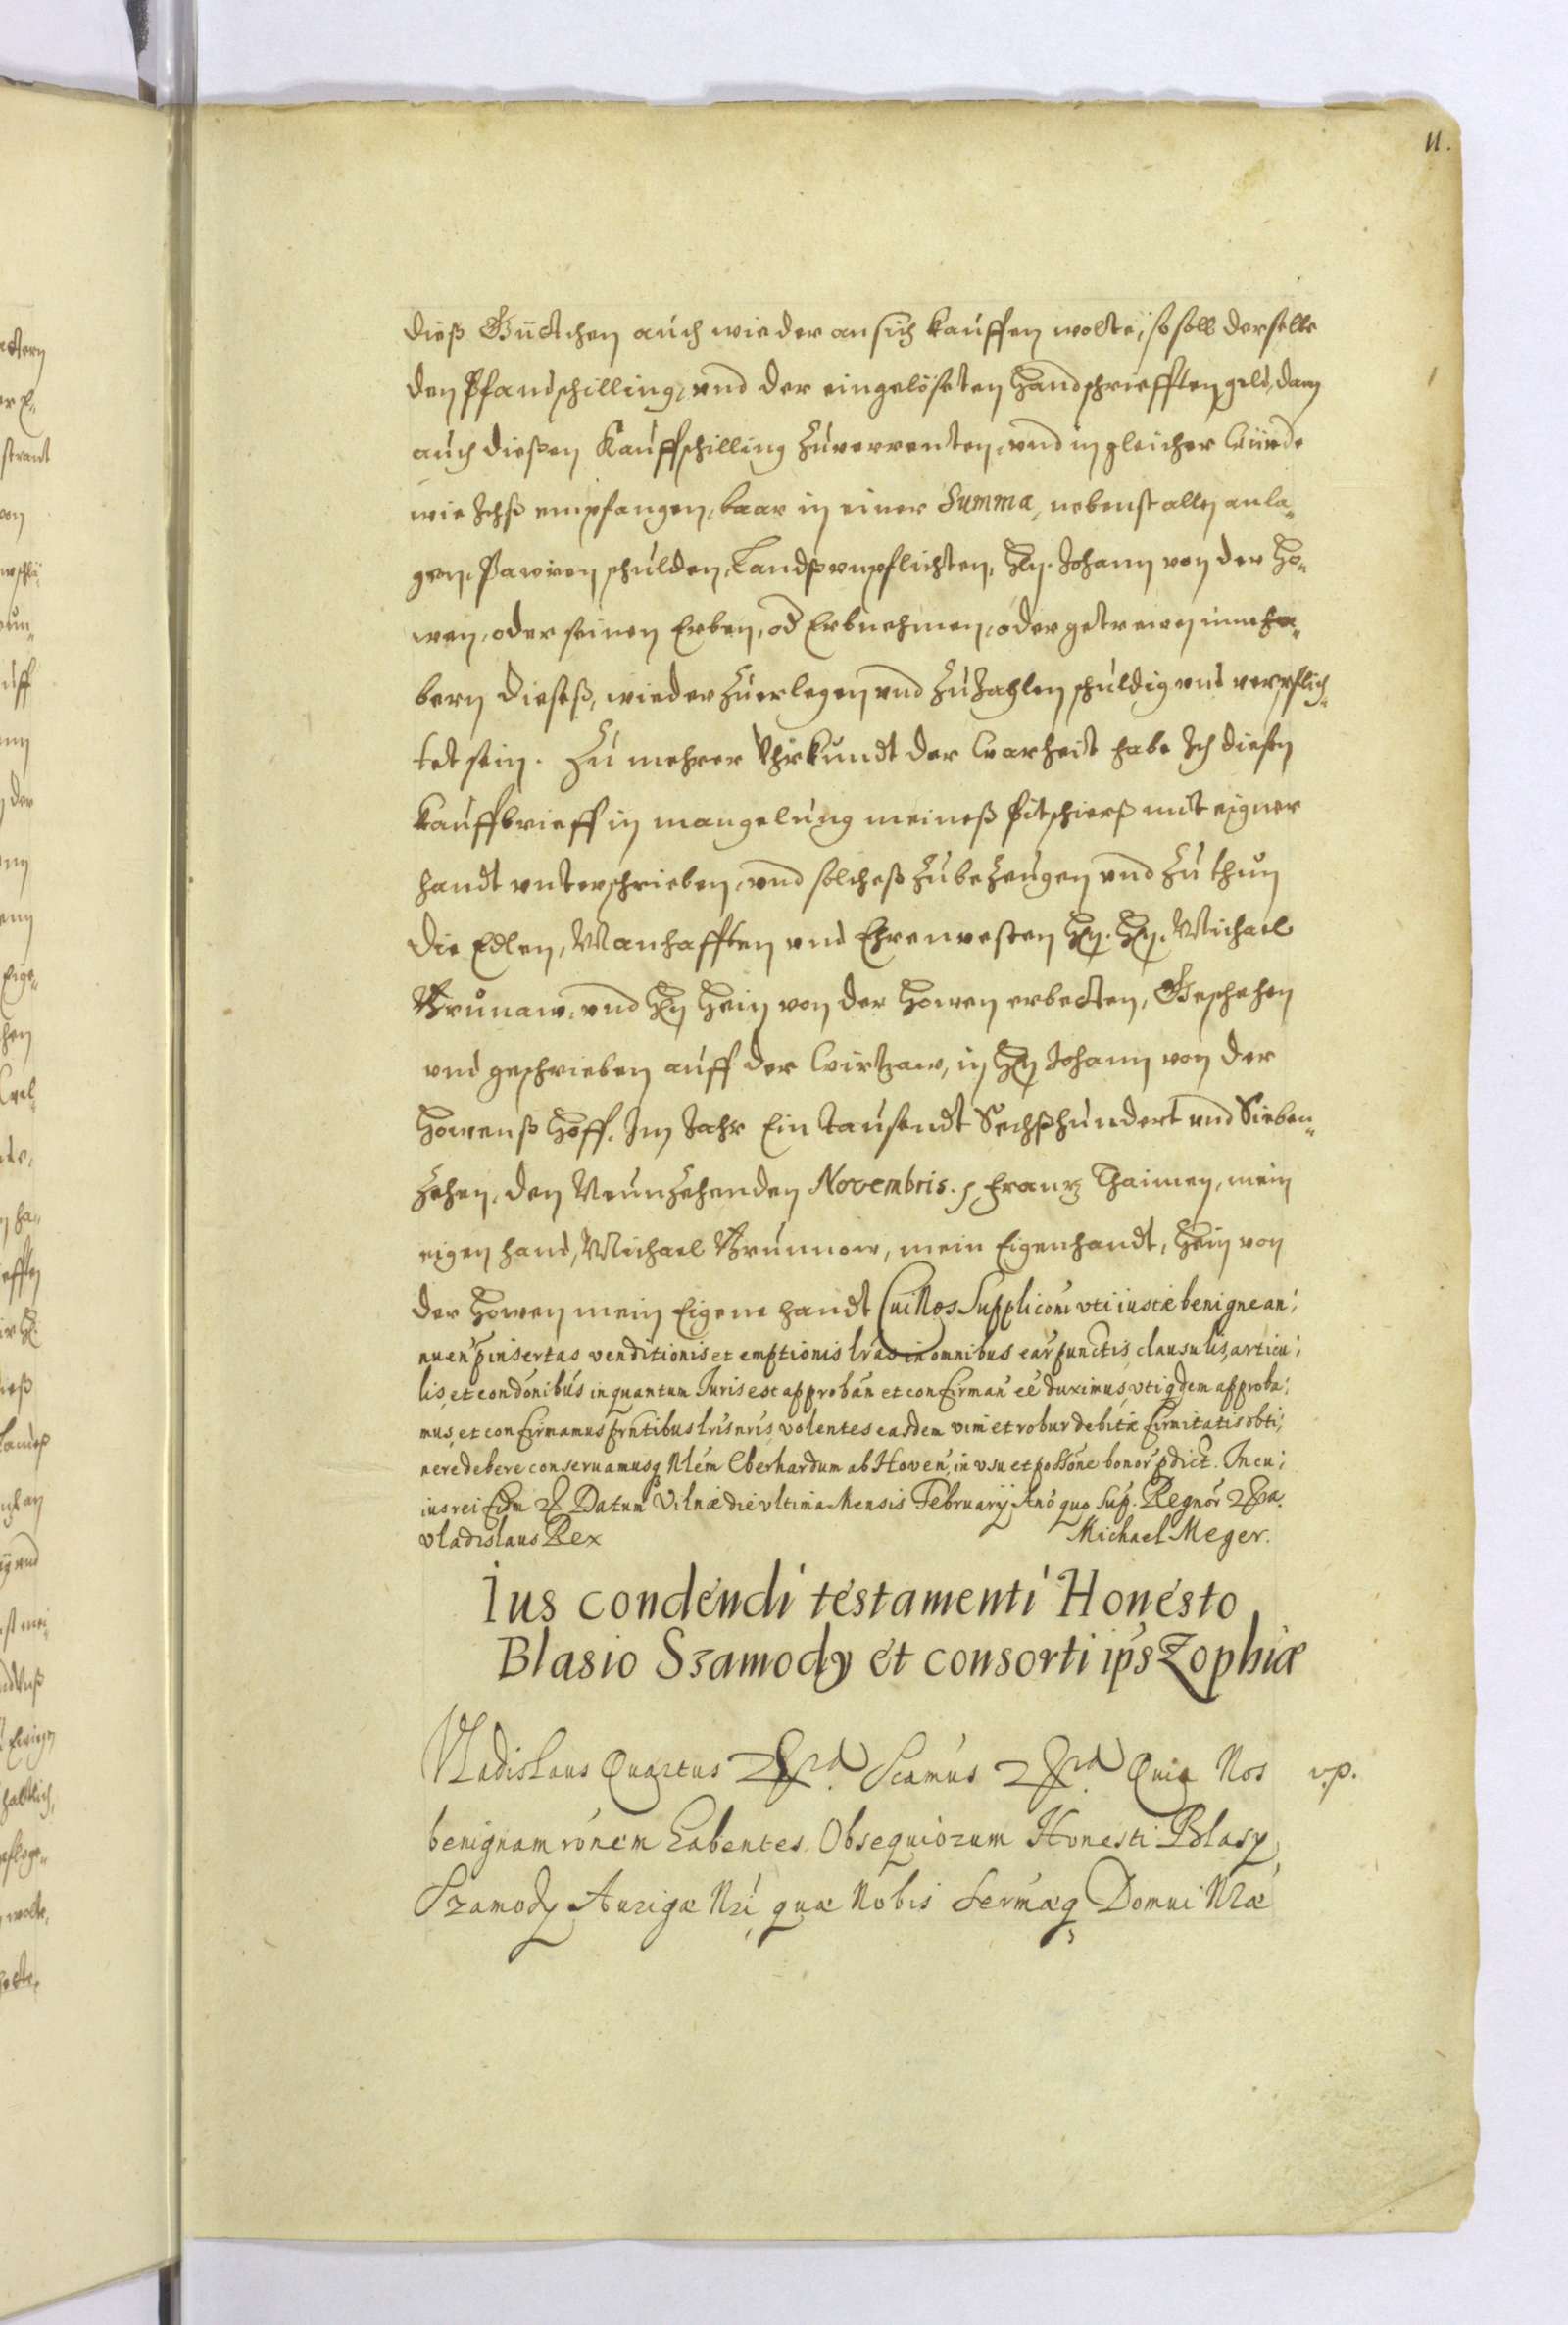 11.
dieß Güttchen auch wieder an sich kauffen wolte, so soll derselbe
den Pfandschilling, und der eingelöseten Handschriefften geld, dann
auch dießen Kauffschilling zuverrenten, und in gleicher Würde
wie Ichß empfangen, baar in einer Summa, nebenst allen anla¬
gen, Pawren schulden, Landß vnpflichten, Hn. Johann von der Ho¬
wen, oder seinen Erben, od Erbnehmen, oder getrewen innha¬
bern dieseß, wieder zuerlegen und zuzahlen schuldig und verpflich¬
tet sein. Zu mehrer Uhrkundt der Warheit habe Ich diesen
kauffbrieff in mangelung meineß Pitschierß mit eigner
handt unterschrieben, und solcheß zubezeugen und zu thun
die Edlen, Manhafften und Ehrenvesten Hn. Hn. Michael
Brunaw, und Hn Hein von der Howen erbetten, Geschehen
und geschrieben auff der Wirtzaw, in Hn Johann von der
Howenß Hoff. Im Jahr Ein Tausendt Sechßhundert und Sieben¬
zehen, den Neunzehenden Novembris. Frantz Thaimen, mein
eigen hand, Michael Brunnow, mein Eigenhandt, Hein von
der Howen mein Eigene handt Cui Nos Supplicõni uti iustæ benigne an¬
nuen̄ pinsertas venditionis et emptionis lrãs in omnibus ear̃ punctis, clausulis, articu¬
lis, et condõnibus in quantum Juris est approbañ et confirmañ eẽ duximus, uti qdem approba¬
mus, et confirmamus prñtibus lrĩs nrĩs, volentes easdem vim et robur debitæ firmitatis obti¬
nere debere conservamusq Nlem Eberhardum ab Hoven, in usu et possõne bonor̃ pdict. In cu¬
ius rei fidm &c Datum Vilnæ die ultima Mensis Februarij Anõ quo Sup. Regnor̃ &ra.
Vladislaus Rex Michael Meger.
Ius condendi testamenti Honesto
Blasio Szamody et consorti ips Zophiæ
Vladislaus Quartus &ra. Scamus &ra Quia Nos v.p.
benignam rõnem habentes Obsequiorum Honesti Blasy
Szamody Aurigæ Nri, quæ Nobis Sermæq Domui Nræ